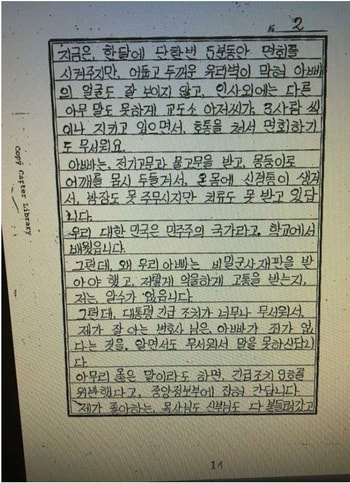 2
지금은, 한달에 단한번 5분동안 면회를
시켜주지만, 어둡고 두꺼운 유리벽이 막혀 아빠
의 얼굴도 잘 보이지 않고, 인사외에는 다른
아무 말도 못하게 교도소 아저씨가, 3사람 씩
이나 지키고 있으면서, 호통을 쳐서 면회하기
도 무서워요.
아빠는, 전기고문과 물고문을 받고, 몽둥이로
어깨를 몹시 두들겨서, 온몸에 신경통이 생겨
서, 밤잠도 못 주무시지만 치료도 못 받고 있답
니다.
우리 대한 민국은 민주주의 국가라고, 학교에서
배웠읍니다.
그런데, 왜 우리 아빠는 비밀군사 재판을 받
아야 했고, 저렇게 억울하게 고통을 받는지,
저는, 알수가 없읍니다.
그런데, 대통령 긴급 조치가 너무나 무서워서,
제가 잘 아는 변호사 님은, 아빠가 죄가 없
다는 것을, 알면서도 무서워서 말을 못하신답니
다
아무리 옳은 말이라도 하면, 긴급조치 9호를
위반했다고, 중앙정보부에 잡혀 간답니다.
제가 좋아하는, 목사님도 신부님도 다 붙들려가고
Copy from Carter Library
14